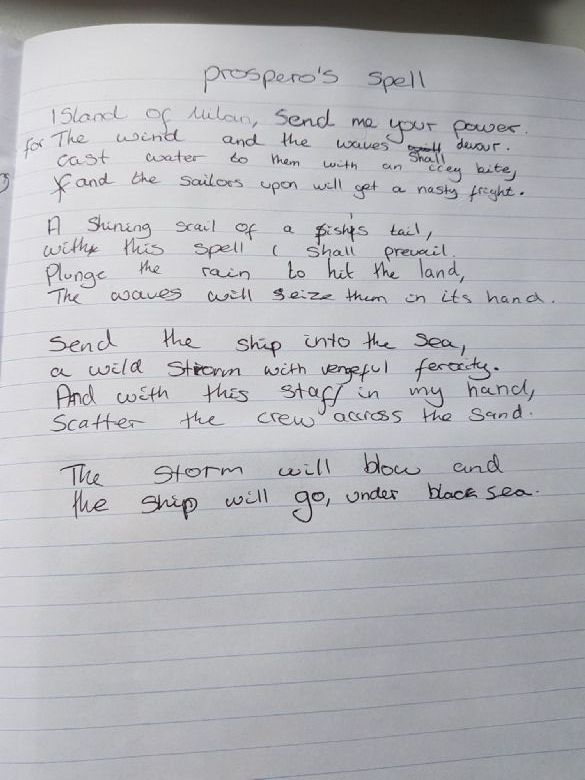 Prospero's Spell
Island of Milan, Send me your power.
for The wind and the waves shall devour.
Cast water to them with an icey bite,
and the sailors upon will get a nasty fright.
A Shining scail of a fish's tail,
with this spell I shall prevail.
Plunge the rain to hit the land,
The waves will seize them in its hand.
Send the ship into the Sea,
a wild Storm with vengeful ferocity.
And with this staff in my hand,
Scatter the crew accross the Sand.
The storm will blow and
the ship will go, under black sea.